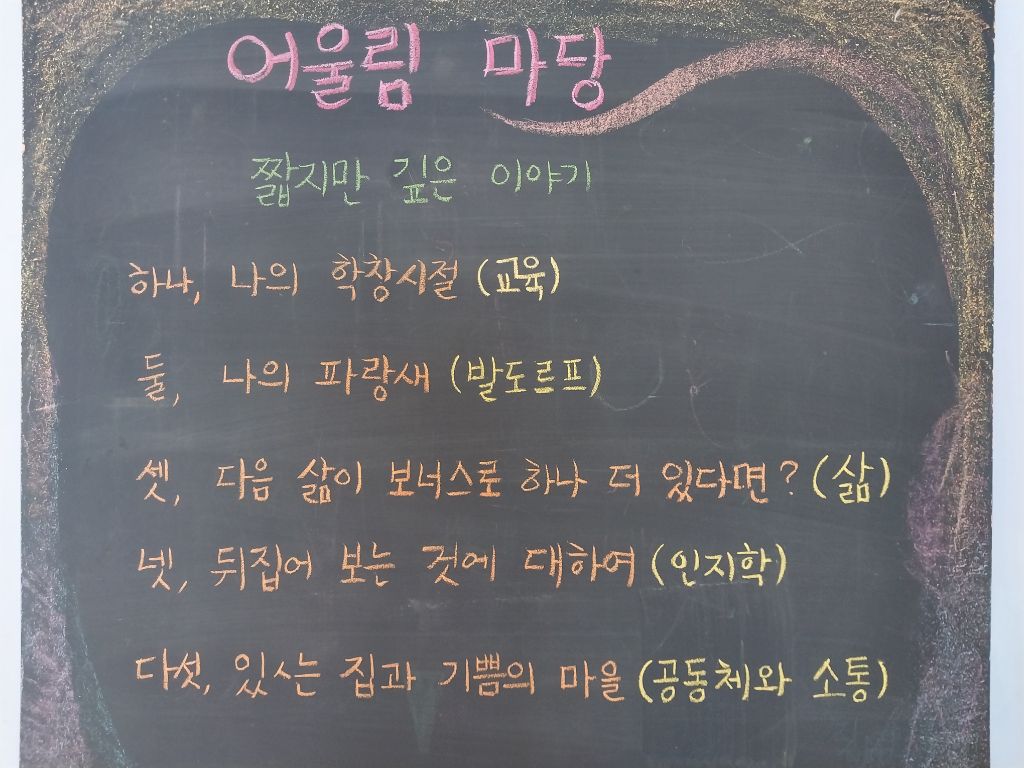 어울림 마당
짧지만 깊은 이야기
하나, 나의 학창시절 (교육)
둘, 나의 파랑새 (발도르프)
셋, 다음 삶이 보너스로 하나 더 있다면? (삶)
넷, 뒤집어 보는 것에 대하여 (인지학)
다섯, 있ㅅ는 집과 기쁨의 마을 (공동체와 소통)